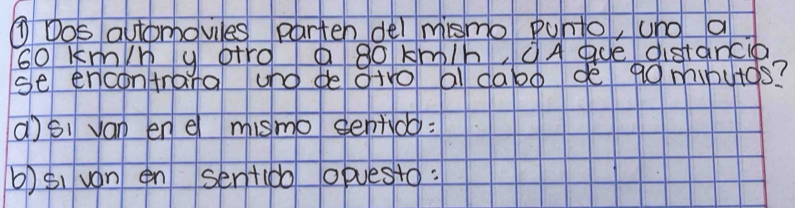 ① Dos automoviles parten del mismo punto, uno a
60 km/h y otro a 80 km/h, ¿A que distancia
se encontrara uno de otro al cabo de 90 minutos?
a) si van en el mismo sentido:
b) si van en sentido opuesto: